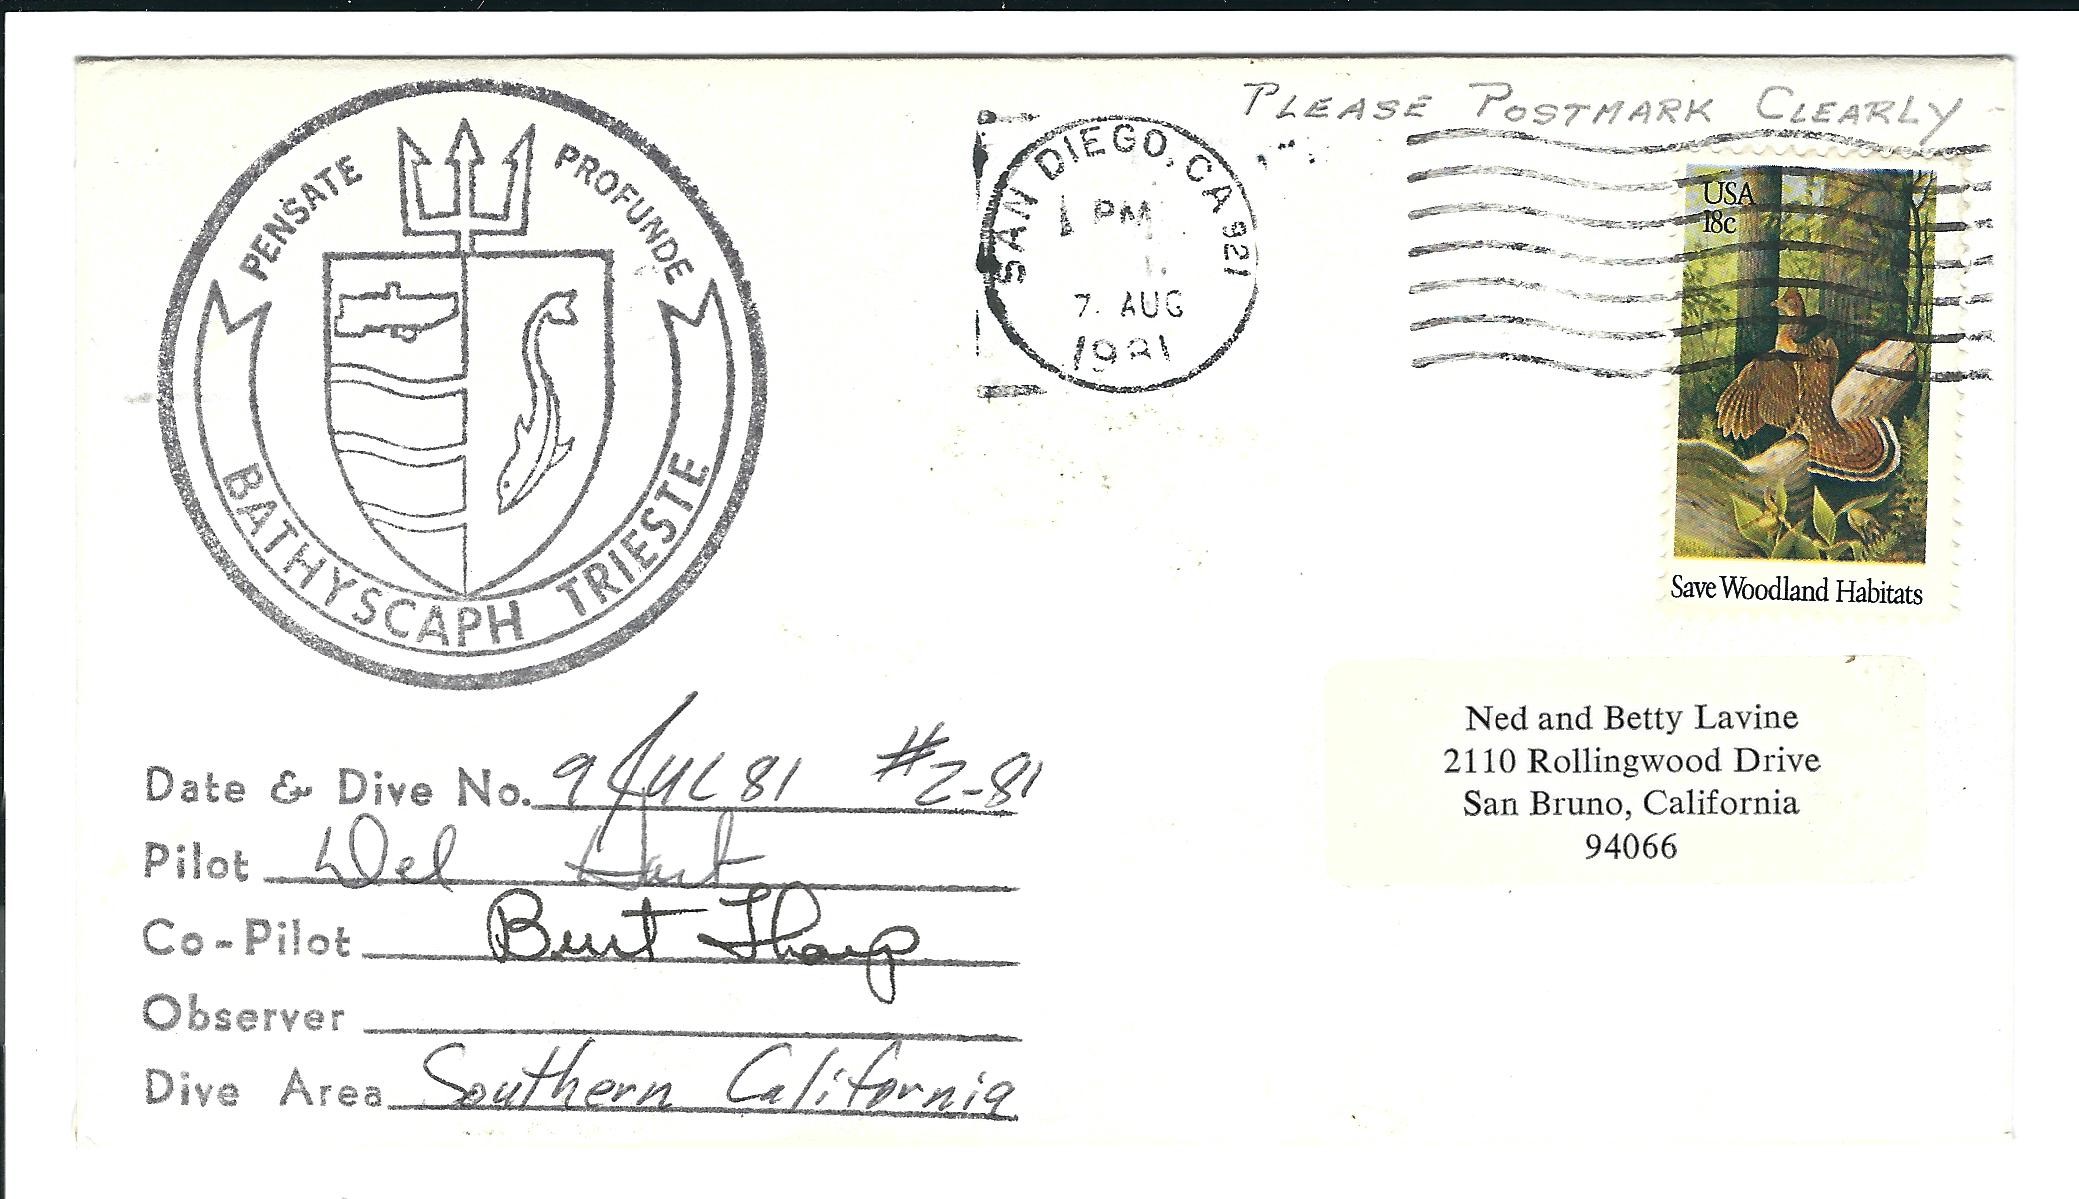 PLEASE POSTMARK CLEARLY
PENSATE PROFUNDE
BATHYSCAPH TRIESTE
SAN DIEGO, CA 921
PM
7 AUG
1981
USA
18c
Save Woodland Habitats
Ned and Betty Lavine
2110 Rollingwood Drive
San Bruno, California
94066
Date & Dive No. 9 JUL 81 #2-81
Pilot Wel Hart
Co-Pilot Burt Tharp
Observer
Dive Area Southern California